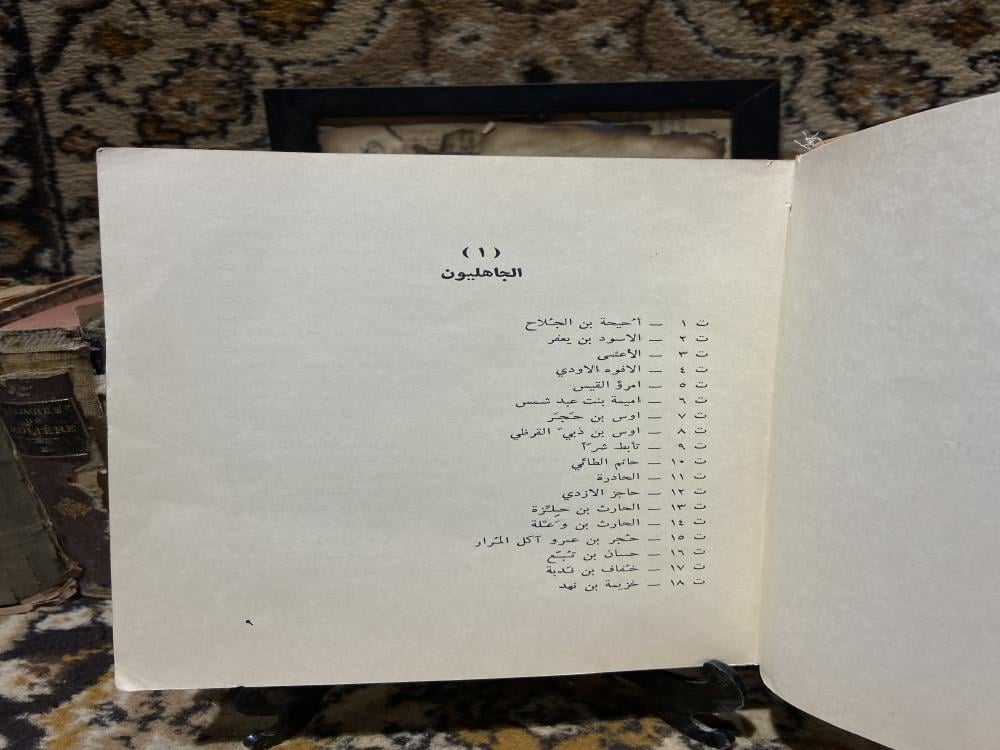 ( ١ )
الجاهليون
ت ١ — أُحيحة بن الجُلاح
ت ٢ — الاسود بن يعفر
ت ٣ — الأعشى
ت ٤ — الافوه الاودي
ت ٥ — امرؤ القيس
ت ٦ — اميمة بنت عبد شمس
ت ٧ — اوس بن حَجَر
ت ٨ — اوس بن ذبيّ القرظي
ت ٩ — تأبط شرّاً
ت ١٠ — حاتم الطائي
ت ١١ — الحادرة
ت ١٢ — حاجز الازدي
ت ١٣ — الحارث بن حِلِّزة
ت ١٤ — الحارث بن وَعْلة
ت ١٥ — حُجر بن عمرو آكل المُرار
ت ١٦ — حسان بن تُبَّع
ت ١٧ — خُفاف بن نَدبة
ت ١٨ — خزيمة بن نهد
٩
ŒUVRES
DE
MOLIÈRE